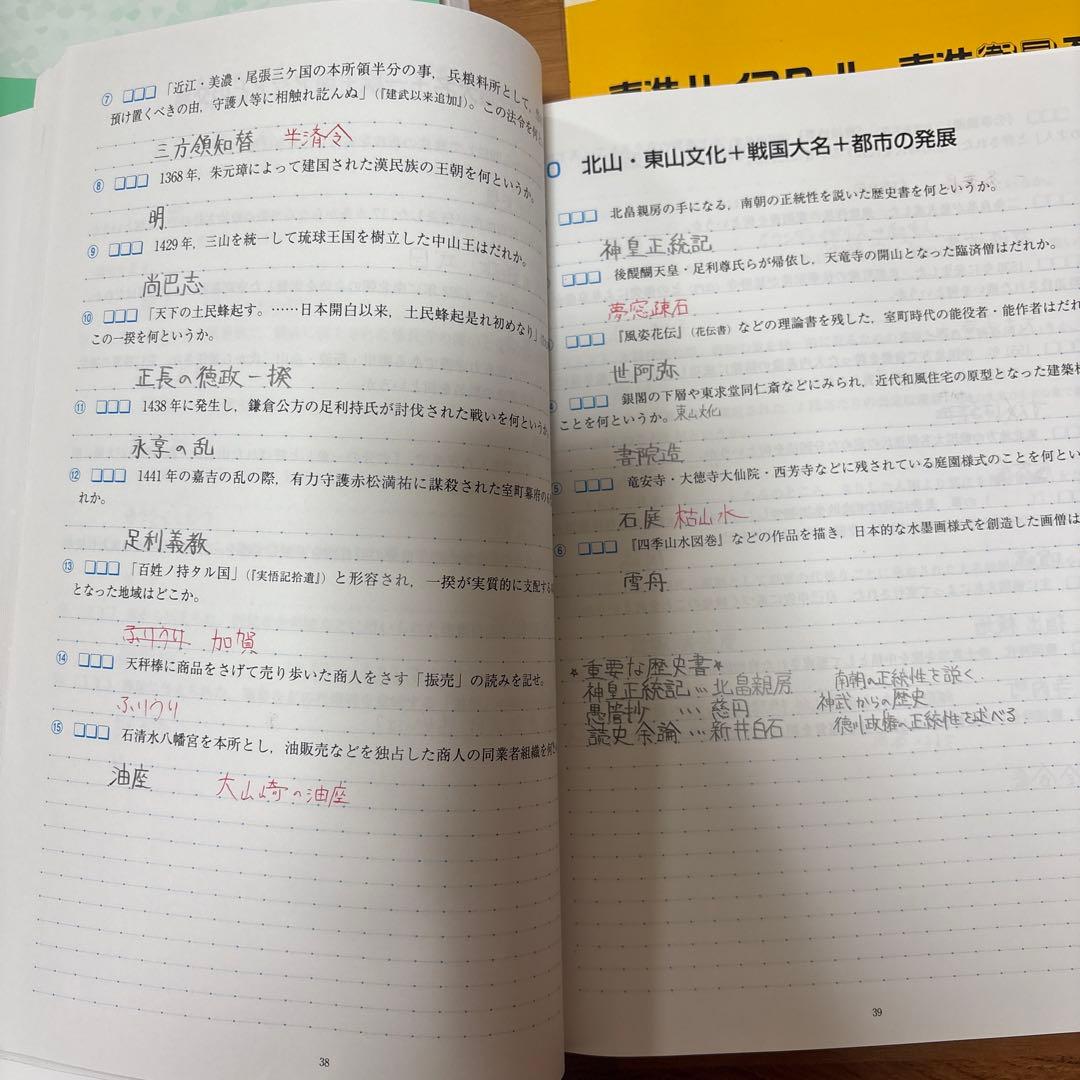 ⑦ □□□ 「近江・美濃・尾張三ケ国の本所領半分の事，兵粮料所として，
預け置くべきの由，守護人等に相触れ訖んぬ」(『建武以来追加』)。この法令を何と
三方領知替 半済令
⑧ □□□ 1368年，朱元璋によって建国された漢民族の王朝を何というか。
明
⑨ □□□ 1429年，三山を統一して琉球王国を樹立した中山王はだれか。
尚巴志
⑩ □□□ 「天下の土民蜂起す。……日本開白以来，土民蜂起是れ初めなり」
この一揆を何というか。
正長の徳政一揆
⑪ □□□ 1438年に発生し，鎌倉公方の足利持氏が討伐された戦いを何というか
永享の乱
⑫ □□□ 1441年の嘉吉の乱の際，有力守護赤松満祐に謀殺された室町幕府の
れか。
足利義教
⑬ □□□ 「百姓ノ持タル国」(『実悟記拾遺』)と形容され，一揆が実質的に支配する
となった地域はどこか。
ふりうり 加賀
⑭ □□□ 天秤棒に商品をさげて売り歩いた商人をさす「振売」の読みを記せ。
ふりうり
⑮ □□□ 石清水八幡宮を本所とし，油販売などを独占した商人の同業者組織を何
油座 大山崎の油座
38
0 北山・東山文化＋戦国大名＋都市の発展
□□□ 北畠親房の手になる，南朝の正統性を説いた歴史書を何というか。
神皇正統記
□□□ 後醍醐天皇・足利尊氏らが帰依し，天竜寺の開山となった臨済僧はだれか。
夢窓疎石
□□□ 『風姿花伝』(花伝書)などの理論書を残した，室町時代の能役者・能作者はだれ
世阿弥
□□□ 銀閣の下層や東求堂同仁斎などにみられ，近代和風住宅の原型となった建築様
ことを何というか。東山文化
書院造
⑤ □□□ 竜安寺・大徳寺大仙院・西芳寺などに残されている庭園様式のことを何とい
石庭 枯山水
⑥ □□□ 『四季山水図巻』などの作品を描き，日本的な水墨画様式を創造した画僧は
雪舟
★重要な歴史書★
神皇正統記…北畠親房 南朝の正統性を説く
愚管抄 …慈円 神武からの歴史
読史余論…新井白石 徳川政権の正統性を述べる
39